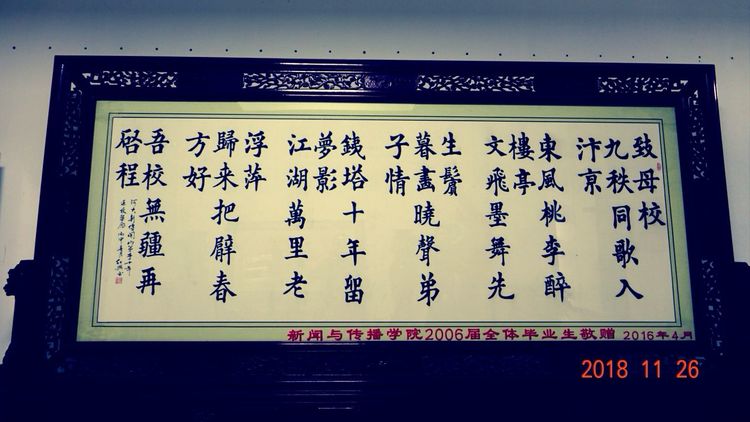 致母校
九秩同歌入
汴京
東風桃李醉
樓亭
文飛墨舞先
生鬢
暮畫曉聲弟
子情
銕塔十年留
夢影
江湖萬里老
浮萍
歸来把臂春
方好
吾校無疆再
啓程
新闻与传播学院2006届全体毕业生敬赠 2016年4月
2018 11 26